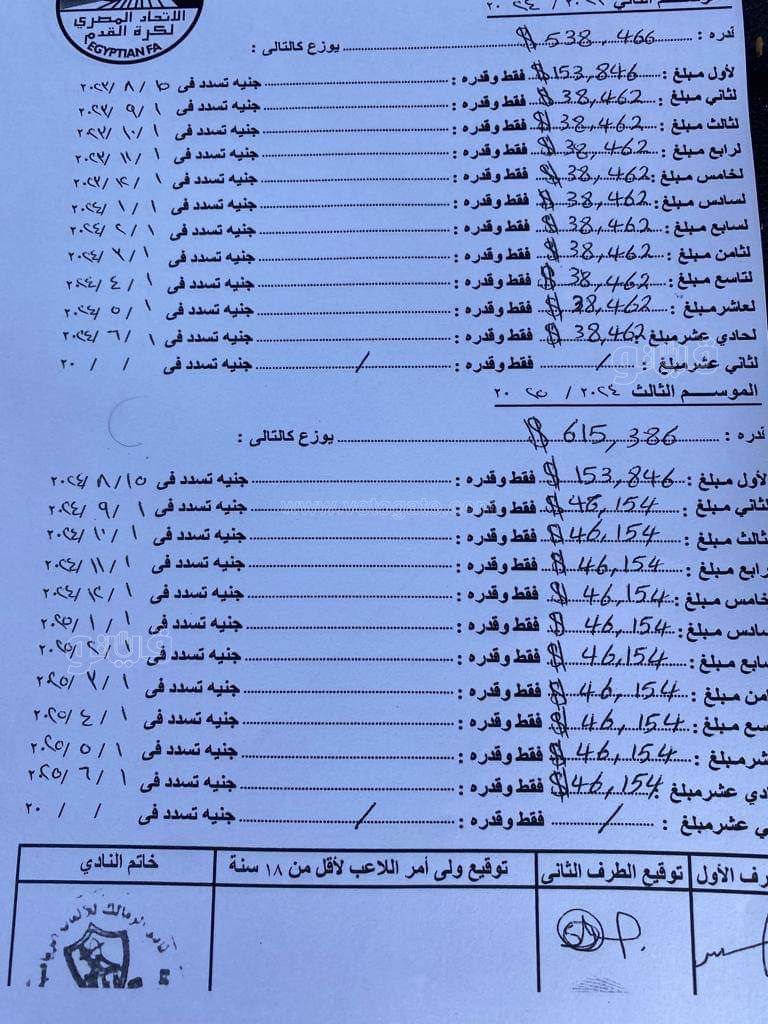 الاتحاد المصري
لكرة القدم
EGYPTIAN FA
قدره : $ 538,466 يوزع كالتالى :
لأول مبلغ : $ 153,846 فقط وقدره : جنيه تسدد فى ١٥ / ٨ / ٢٠٢٣
لثاني مبلغ : $ 38,462 فقط وقدره : جنيه تسدد فى ١ / ٩ / ٢٠٢٣
لثالث مبلغ : $ 38,462 فقط وقدره : جنيه تسدد فى ١ / ١٠ / ٢٠٢٣
لرابع مبلغ : $ 38,462 فقط وقدره : جنيه تسدد فى ١ / ١١ / ٢٠٢٣
لخامس مبلغ : $ 38,462 فقط وقدره : جنيه تسدد فى ١ / ١٢ / ٢٠٢٣
لسادس مبلغ : $ 38,462 فقط وقدره : جنيه تسدد فى ١ / ١ / ٢٠٢٤
لسابع مبلغ : $ 38,462 فقط وقدره : جنيه تسدد فى ١ / ٢ / ٢٠٢٤
لثامن مبلغ : $ 38,462 فقط وقدره : جنيه تسدد فى ١ / ٣ / ٢٠٢٤
لتاسع مبلغ : $ 38,462 فقط وقدره : جنيه تسدد فى ١ / ٤ / ٢٠٢٤
لعاشر مبلغ : $ 38,462 فقط وقدره : جنيه تسدد فى ١ / ٥ / ٢٠٢٤
لحادي عشر مبلغ : $ 38,462 فقط وقدره : جنيه تسدد فى ١ / ٦ / ٢٠٢٤
لثاني عشر مبلغ : / فقط وقدره : / جنيه تسدد فى / / ٢٠
الموسم الثالث ٢٠٢٤ / ٢٠٢٥
قدره : $ 615,386 يوزع كالتالى :
لأول مبلغ : $ 153,846 فقط وقدره : جنيه تسدد فى ١٥ / ٨ / ٢٠٢٤
لثاني مبلغ : $ 46,154 فقط وقدره : جنيه تسدد فى ١ / ٩ / ٢٠٢٤
ثالث مبلغ : $ 46,154 فقط وقدره : جنيه تسدد فى ١ / ١٠ / ٢٠٢٤
رابع مبلغ : $ 46,154 فقط وقدره : جنيه تسدد فى ١ / ١١ / ٢٠٢٤
خامس مبلغ : $ 46,154 فقط وقدره : جنيه تسدد فى ١ / ١٢ / ٢٠٢٤
سادس مبلغ : $ 46,154 فقط وقدره : جنيه تسدد فى ١ / ١ / ٢٠٢٥
سابع مبلغ : $ 46,154 فقط وقدره : جنيه تسدد فى ١ / ٢ / ٢٠٢٥
امن مبلغ : $ 46,154 فقط وقدره : جنيه تسدد فى ١ / ٣ / ٢٠٢٥
سع مبلغ : $ 46,154 فقط وقدره : جنيه تسدد فى ١ / ٤ / ٢٠٢٥
شر مبلغ : $ 46,154 فقط وقدره : جنيه تسدد فى ١ / ٥ / ٢٠٢٥
دي عشر مبلغ : $ 46,154 فقط وقدره : جنيه تسدد فى ١ / ٦ / ٢٠٢٥
ي عشر مبلغ : / فقط وقدره : / جنيه تسدد فى / / ٢٠
رف الأول توقيع الطرف الثانى توقيع ولى أمر اللاعب لأقل من ١٨ سنة خاتم النادي